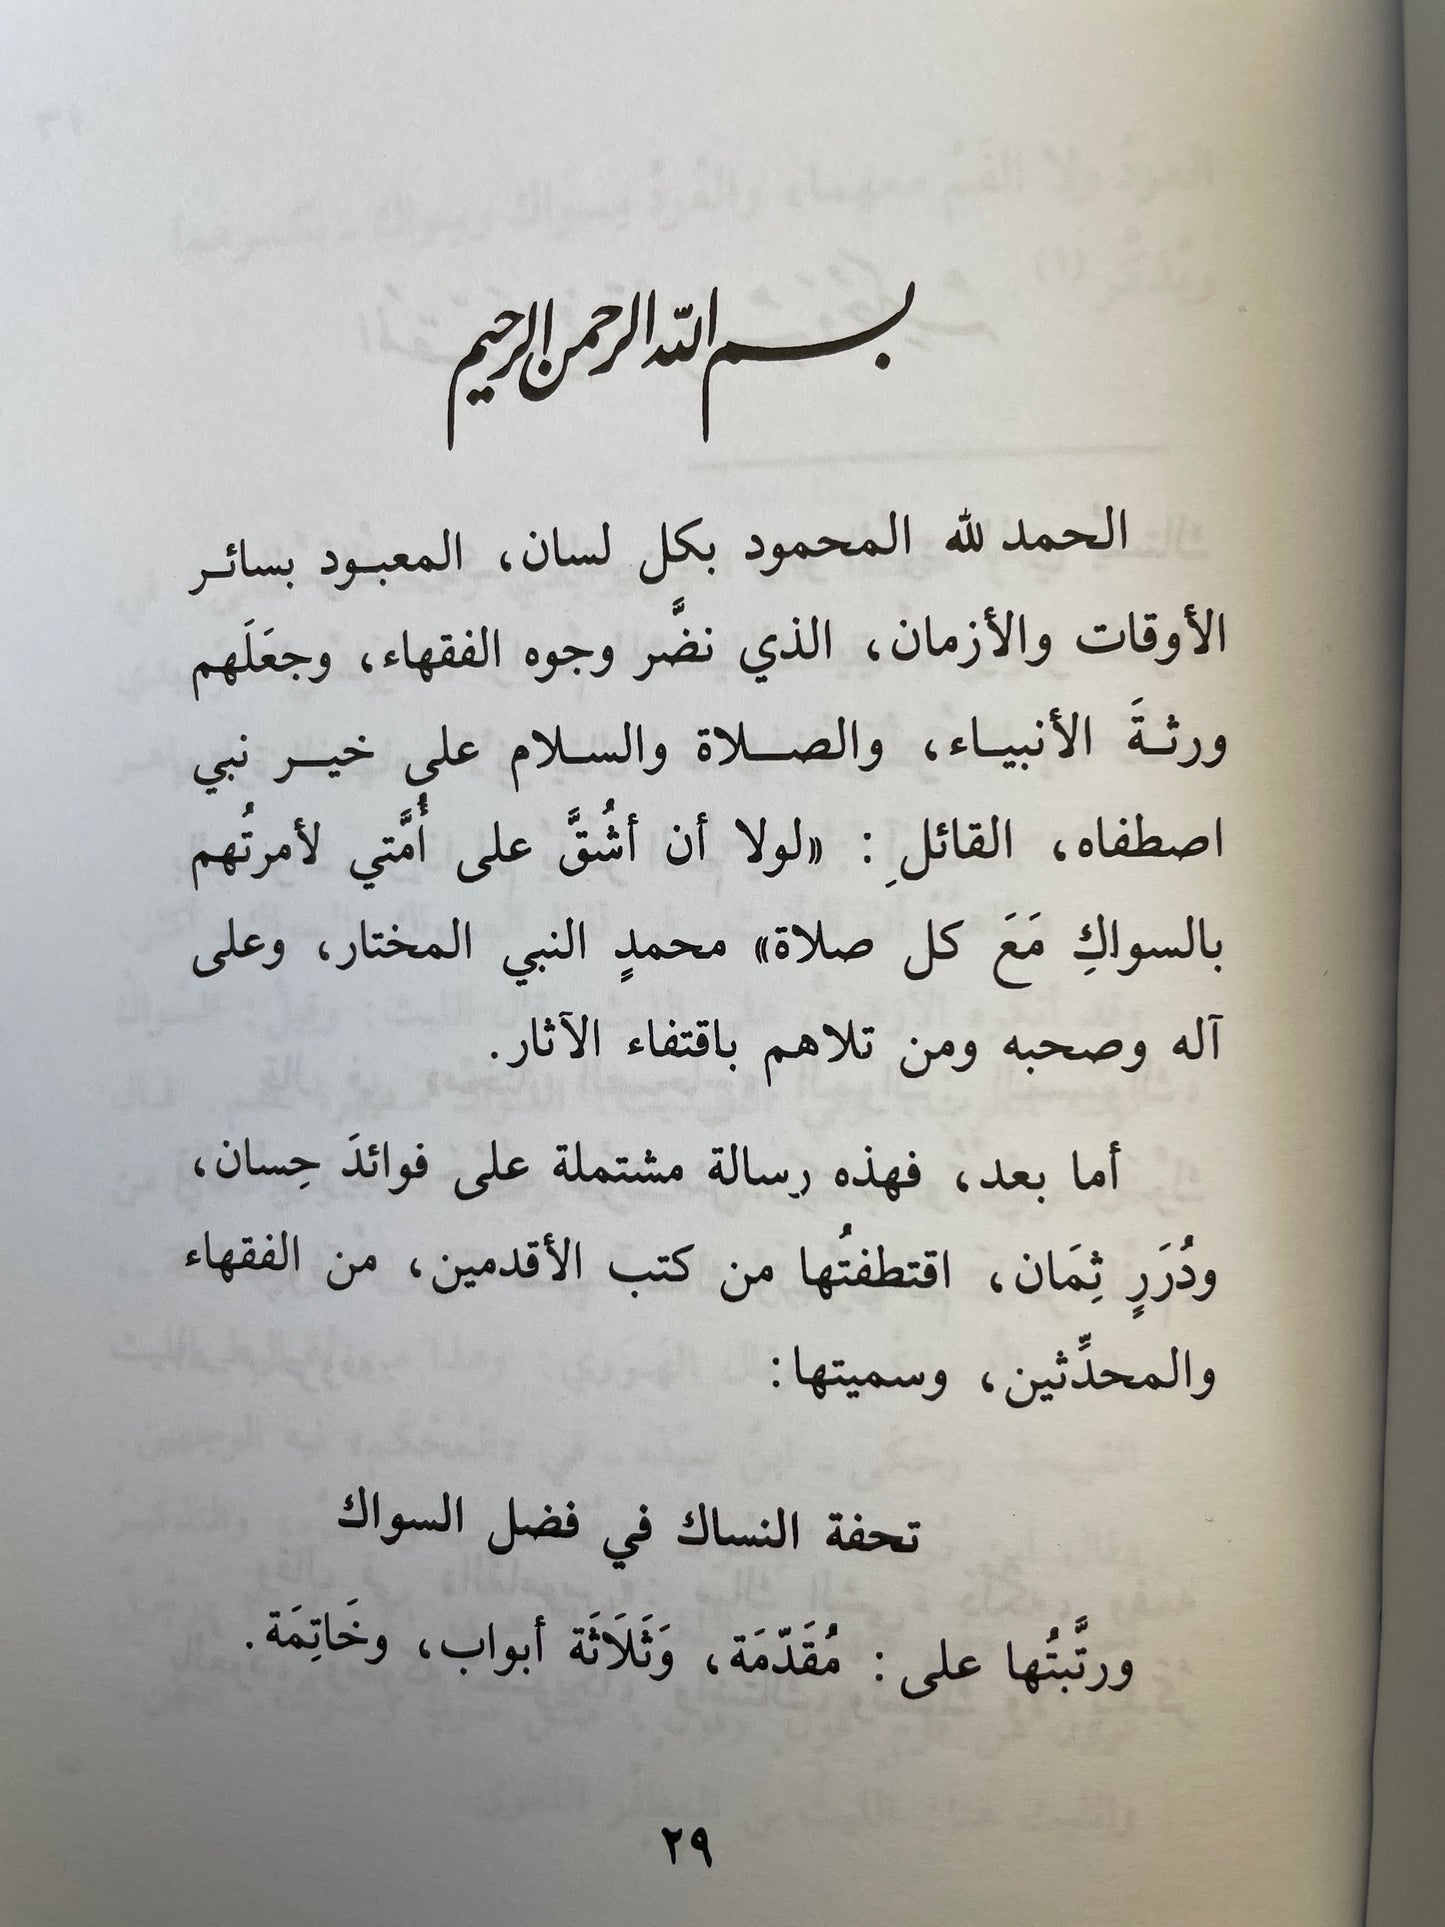 بسم الله الرحمن الرحيم
الحمد لله المحمود بكل لسان، المعبود بسائر
الأوقات والأزمان، الذي نضَّر وجوه الفقهاء، وجعَلَهم
ورثةَ الأنبياء، والصلاة والسلام على خير نبي
اصطفاه، القائلِ: «لولا أن أشُقَّ على أُمَّتي لأمرتُهم
بالسواكِ مَعَ كل صلاة» محمدٍ النبي المختار، وعلى
آله وصحبه ومن تلاهم باقتفاء الآثار.
أما بعد، فهذه رِسالة مشتملة على فوائدَ حِسان،
ودُرَرٍ ثِمَان، اقتطفتُها من كتب الأقدمين، من الفقهاء
والمحدِّثين، وسميتها:
تحفة النساك في فضل السواك
ورتَّبتُها على: مُقَدّمَة، وَثَلَاثَة أبواب، وخَاتِمَة.
٢٩